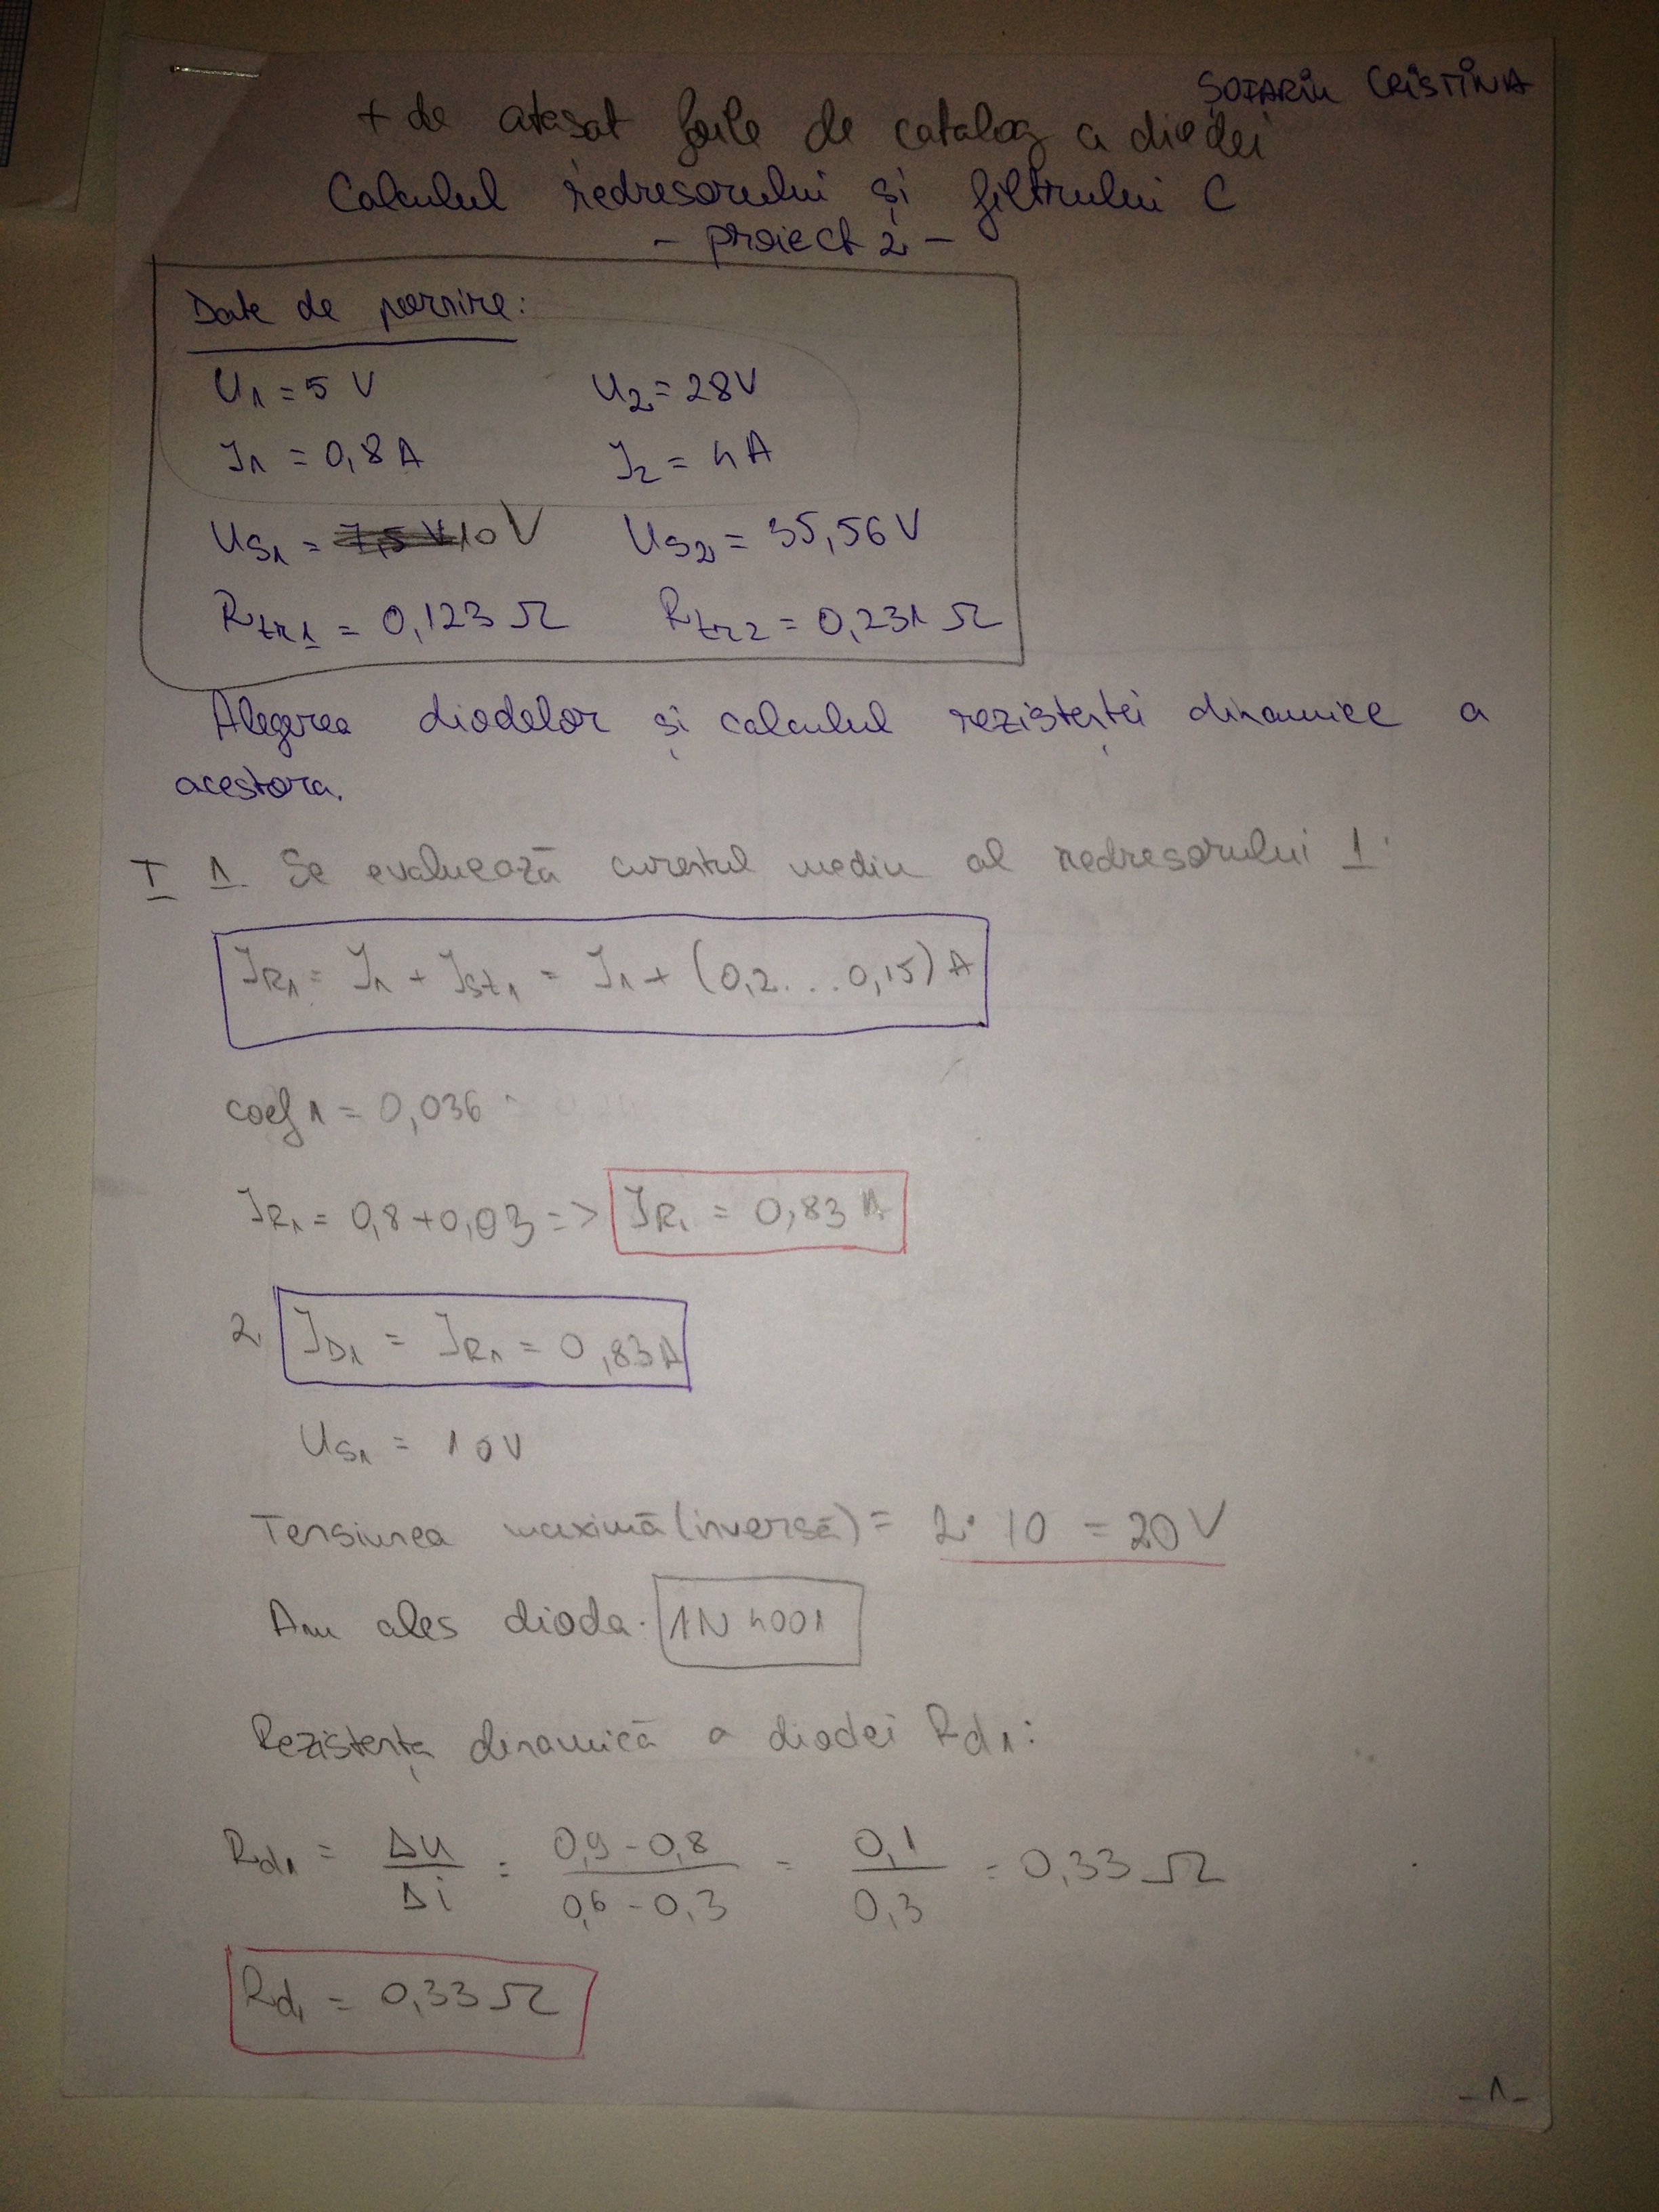 ȘOTARIU CRISTINA
+ de atașat foile de catalog a diodei
Calculul redresorului și filtrului C
- proiect 2 -
Date de pornire:
U1 = 5 V U2 = 28V
I1 = 0,8 A I2 = 4 A
US1 = 10V US2 = 35,56 V
Rtr1 = 0,123 Ω Rtr2 = 0,231 Ω
Alegerea diodelor și calculul rezistenței dinamice a
acestora.
I 1. Se evaluează curentul mediu al redresorului 1
IR1 = I1 + Ist1 = I1 + (0,2...0,15) A
coef1 = 0,036
IR1 = 0,8+0,03 => IR1 = 0,83 A
2. ID1 = IR1 = 0,83A
US1 = 10V
Tensiunea maximă (inversă) = 2·10 = 20V
Am ales dioda: 1N4001
Rezistența dinamică a diodei Rd1:
Rd1 = Δu/Δi = (0,9-0,8)/(0,6-0,3) = 0,1/0,3 = 0,33 Ω
Rd1 = 0,33 Ω
-1-